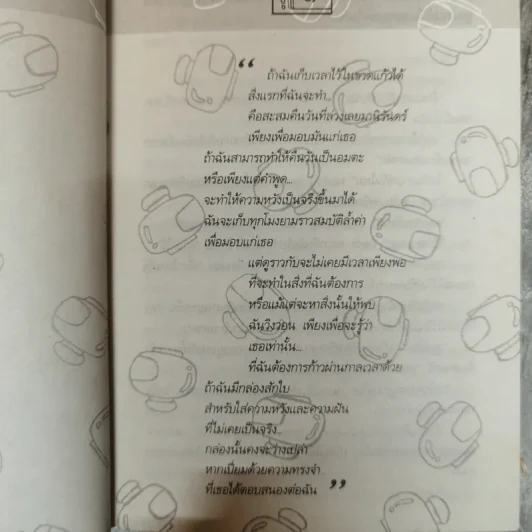 “ ถ้าฉันเก็บเวลาไว้ในขวดแก้วได้
สิ่งแรกที่ฉันจะทำ...
คือสะสมคืนวันที่ล่วงเลยมานิรันดร์
เพียงเพื่อมอบมันแก่เธอ
ถ้าฉันสามารถทำให้คืนวันเป็นอมตะ
หรือเพียงแต่คำพูด...
จะทำให้ความหวังเป็นจริงขึ้นมาได้
ฉันจะเก็บทุกโมงยามราวสมบัติล้ำค่า
เพื่อมอบแก่เธอ
แต่ดูราวกับจะไม่เคยมีเวลาเพียงพอ
ที่จะทำในสิ่งที่ฉันต้องการ
หรือแม้แต่จะหาสิ่งนั้นให้พบ
ฉันวิงวอน เพียงเพื่อจะรู้ว่า
เธอเท่านั้น...
ที่ฉันต้องการก้าวผ่านกาลเวลาด้วย
ถ้าฉันมีกล่องสักใบ
สำหรับใส่ความหวังและความฝัน
ที่ไม่เคยเป็นจริง...
กล่องนั้นคงจะว่างเปล่า
หากเปี่ยมด้วยความทรงจำ
ที่เธอได้ตอบสนองต่อฉัน ”